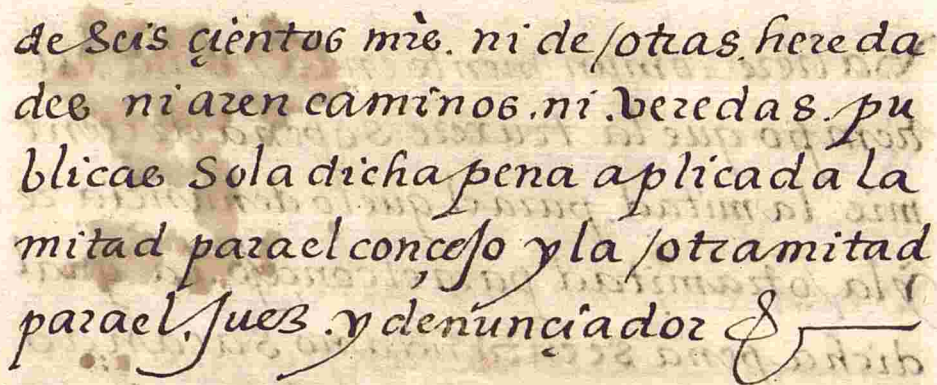 de seis çientos mrs. ni de /otras. hereda
des ni aren caminos. ni. veredas. pu
blicas so la dicha pena aplicada la
mitad para el conçejo y la /otra mitad
para el. juez. y denunçiador